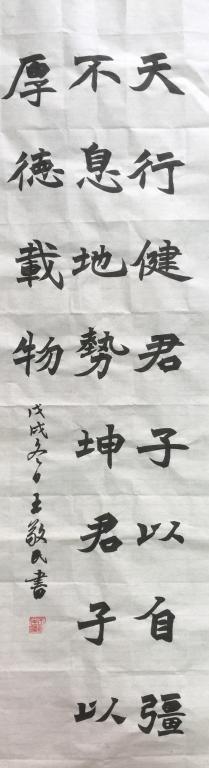 天行健君子以自彊
不息地勢坤君子以
厚德載物
戊戌冬日王敬民書